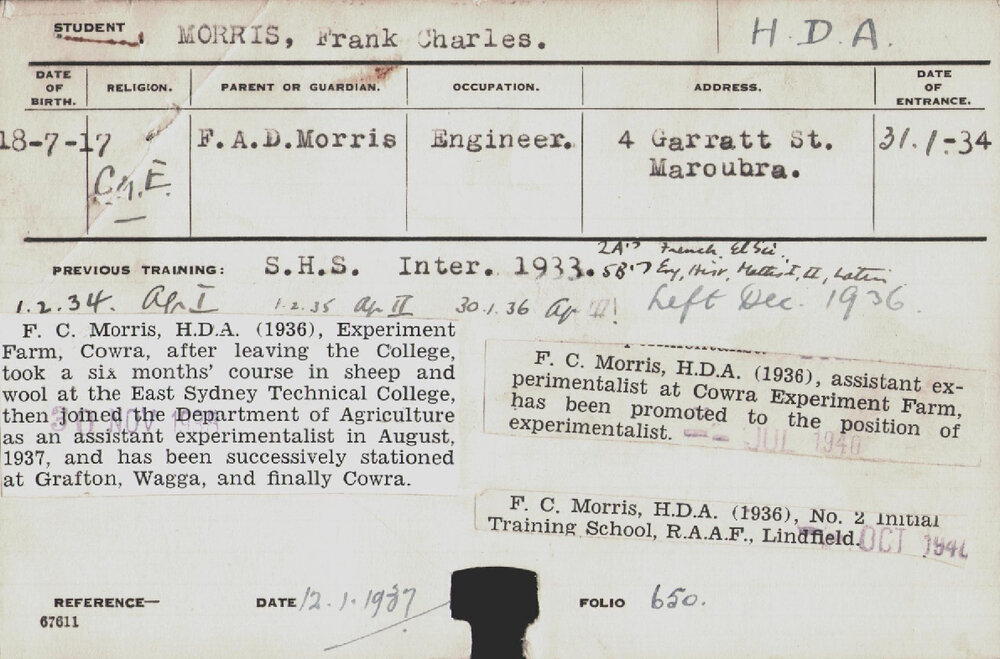 STUDENT MORRIS, Frank Charles. H.D.A.
DATE OF BIRTH. RELIGION. PARENT OR GUARDIAN. OCCUPATION. ADDRESS. DATE OF ENTRANCE.
18-7-17 F.A.D.Morris Engineer. 4 Garratt St. 31.1-34
Ch.E. Maroubra.
2A's French. El Sci.
PREVIOUS TRAINING: S.H.S. Inter. 1933. 5B's Eng, Hist, Maths I, II, Latin
1.2.34. Ag I 1-2-35 Ag II 30.1.36 Ag III Left Dec. 1936.
F. C. Morris, H.D.A. (1936), Experiment
Farm, Cowra, after leaving the College,
took a six months' course in sheep and
wool at the East Sydney Technical College,
then joined the Department of Agriculture
as an assistant experimentalist in August,
1937, and has been successively stationed
at Grafton, Wagga, and finally Cowra.
NOV
F. C. Morris, H.D.A. (1936), assistant ex-
perimentalist at Cowra Experiment Farm,
has been promoted to the position of
experimentalist.
JUL 1940
F. C. Morris, H.D.A. (1936), No. 2 Initial
Training School, R.A.A.F., Lindfield.
OCT
REFERENCE— DATE 12.1.1937 FOLIO 650.
67611